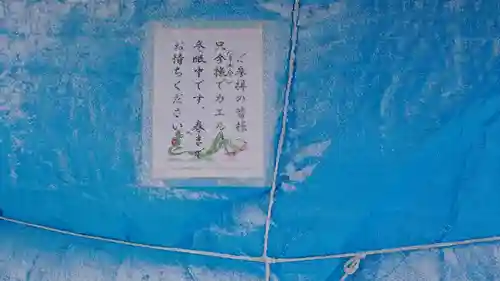 ご参拝の皆様へ
只今様でカエルは
冬眠中です。春まで
お待ちください